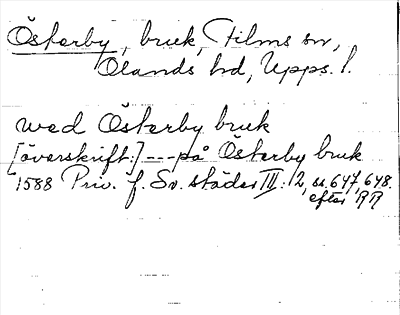 Österby, bruk, Films sn,
Olands hd, Upps. l.
wed Österby bruk
[överskrift:] --- på Österby bruk
1588 Priv. f. Sv. städer III: 12, ss. 647, 648.
efter RR